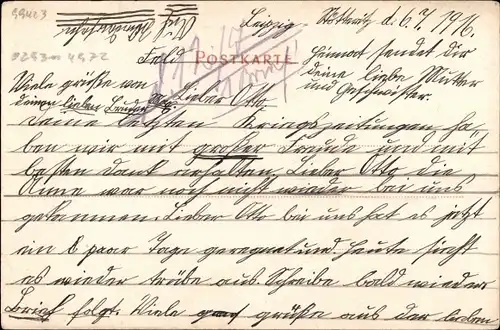 99423
Leipzig-Stötteritz, d. 6.7.1916.
9293 4972
Feld POSTKARTE
Viele grüße von
deinem lieben Bruder
Lieber Otto,
Heimat sendet dir
deine liebe Mutter
und Geschwister.
Deine letzten Kriegszeitungen ha-
ben wir mit großer Freude und mit
besten dank erhalten. Lieber Otto die
Anne war noch nicht wieder bei uns
gekommen. Lieber Otto bei uns hat es jetzt
ein paar Tage geregnet und heute sieht
es wieder trübe aus. Schreibe bald wieder
Brief folgt. Viele grüße aus der lieben